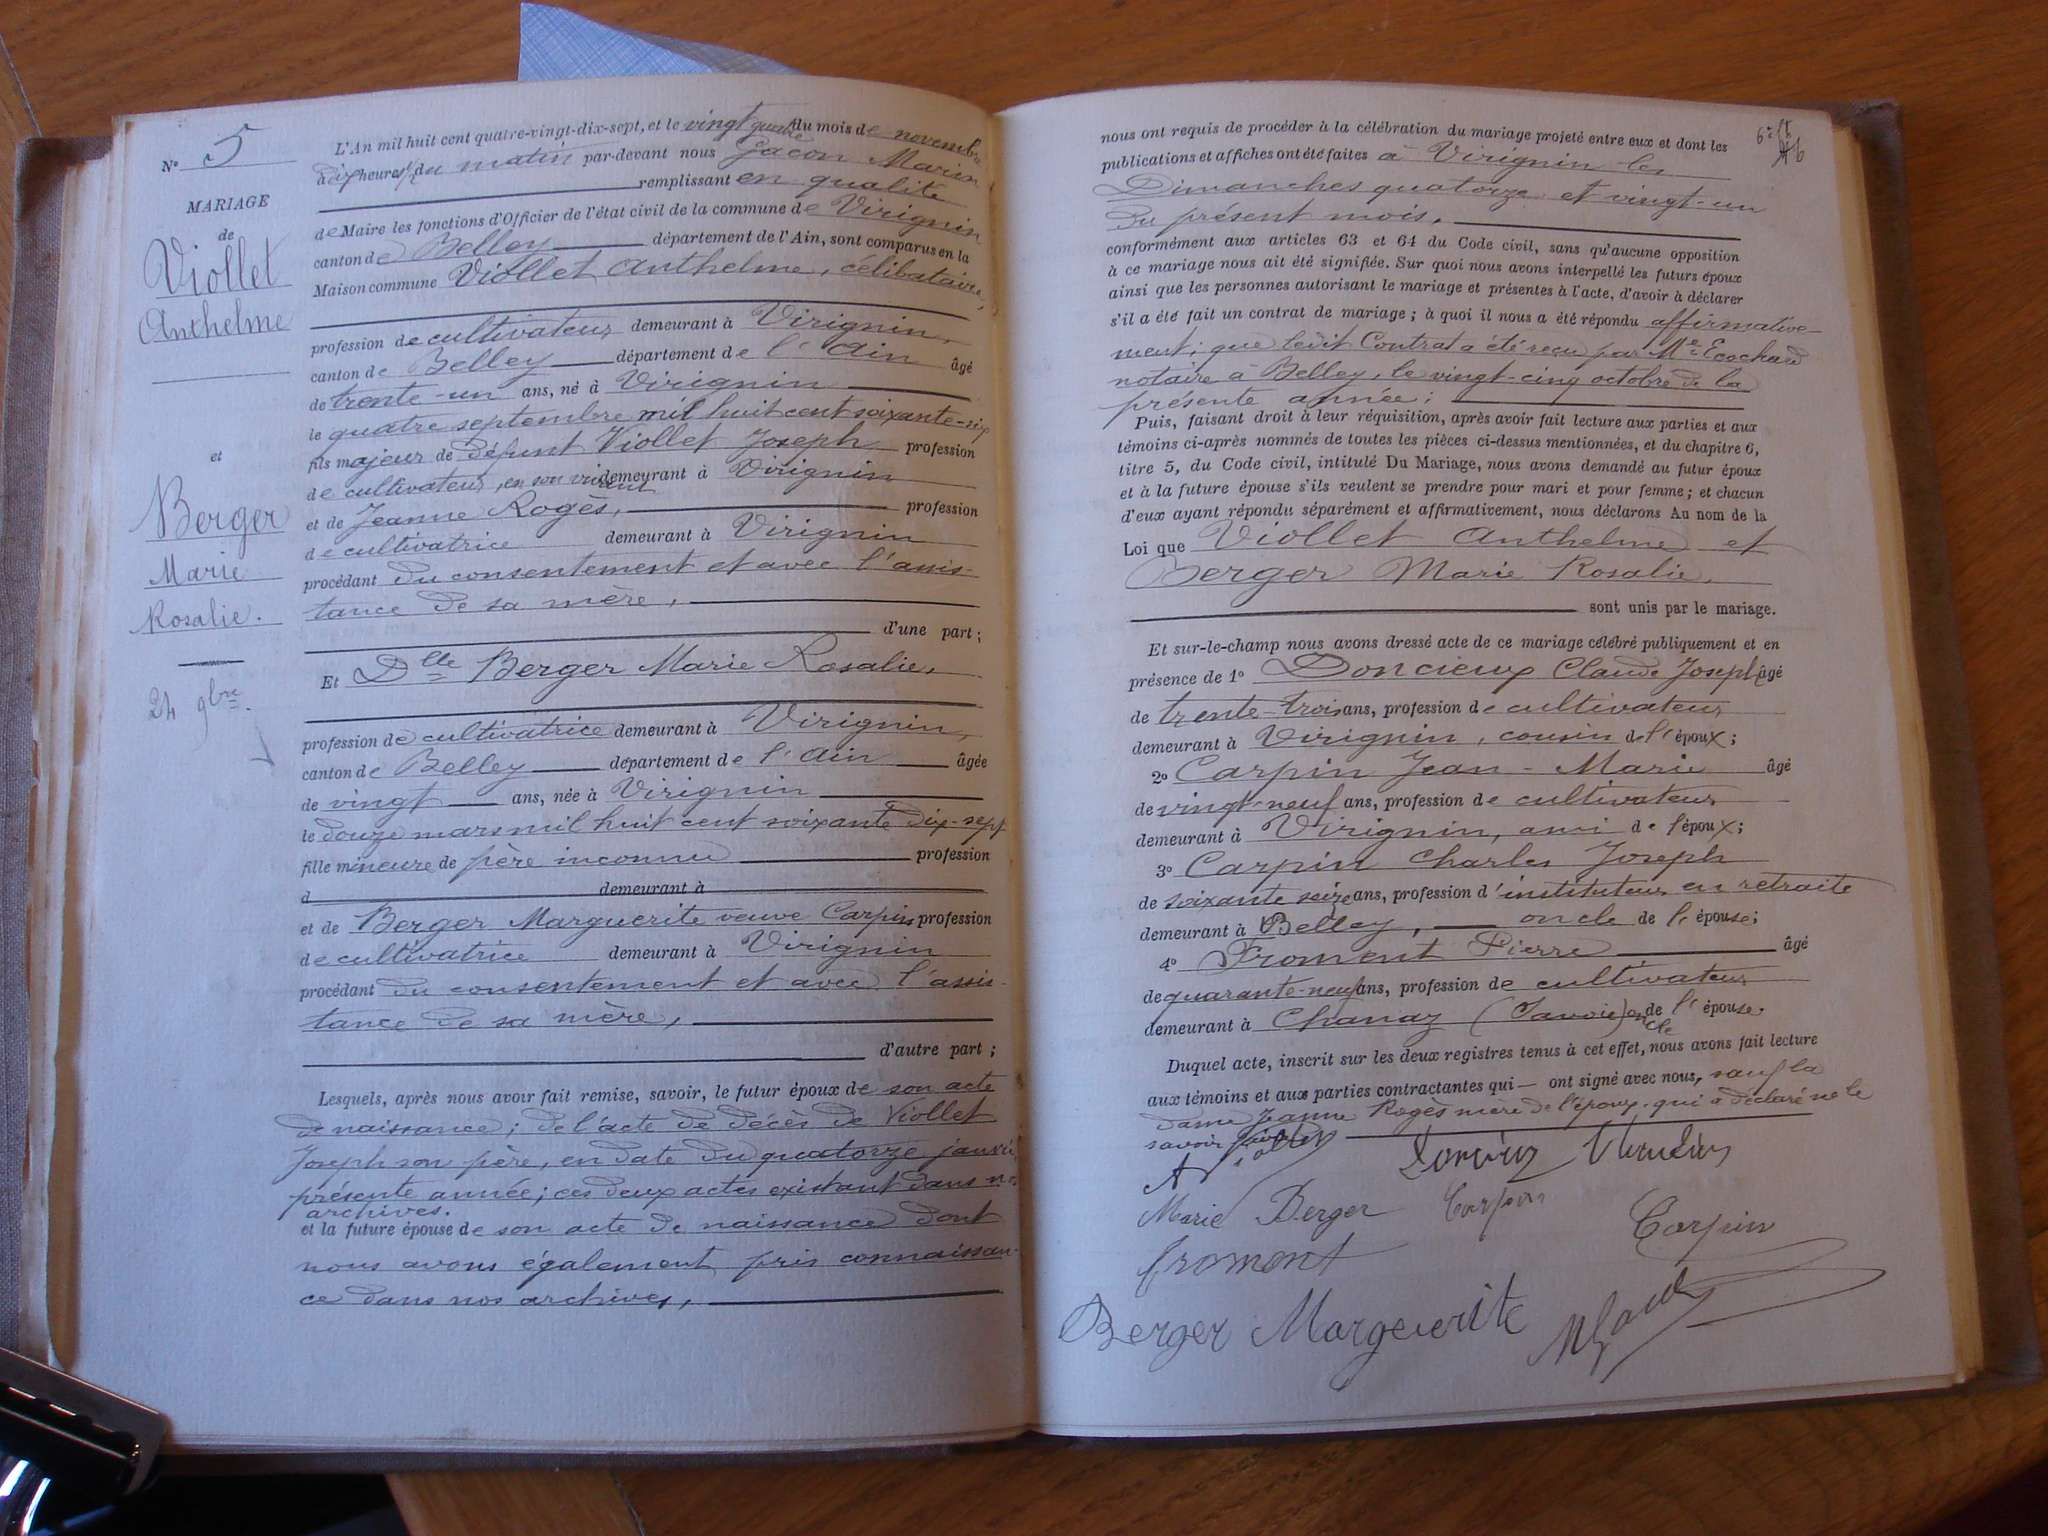 N° 5
MARIAGE
de
Viollet
Anthelme
et
Berger
Marie
Rosalie.
24 9bre.
L'An mil huit cent quatre-vingt-dix-sept, et le vingt quatre du mois de novembre
à dix heures du matin par-devant nous Jacon Marin
remplissant en qualité
de Maire les fonctions d'Officier de l'état civil de la commune de Virignin
canton de Belley département de l'Ain, sont comparus en la
Maison commune Viollet Anthelme, célibataire,
profession de cultivateur, demeurant à Virignin,
canton de Belley département de l'Ain âgé
de trente-un ans, né à Virignin
le quatre septembre mil huit cent soixante-six
fils majeur de défunt Viollet Joseph profession
de cultivateur, en son vivant demeurant à Virignin
et de Jeanne Rogès, profession
de cultivatrice demeurant à Virignin
procédant du consentement et avec l'assis-
tance de sa mère,
d'une part;
Et Dlle Berger Marie Rosalie,
profession de cultivatrice demeurant à Virignin,
canton de Belley département de l'Ain âgée
de vingt ans, née à Virignin
le douze mars mil huit cent soixante dix-sept
fille mineure de père inconnu profession
d demeurant à
et de Berger Marguerite veuve Carpin profession
de cultivatrice demeurant à Virignin
procédant du consentement et avec l'assis-
tance de sa mère,
d'autre part;
Lesquels, après nous avoir fait remise, savoir, le futur époux de son acte
de naissance; de l'acte de décès de Viollet
Joseph son père, en date du quatorze janvier
présente année; ces deux actes existant dans nos
archives.
et la future épouse de son acte de naissance dont
nous avons également pris connaissan-
ce dans nos archives,
nous ont requis de procéder à la célébration du mariage projeté entre eux et dont les
publications et affiches ont été faites à Virignin les
Dimanches quatorze et vingt-un
du présent mois.
conformément aux articles 63 et 64 du Code civil, sans qu'aucune opposition
à ce mariage nous ait été signifiée. Sur quoi nous avons interpellé les futurs époux
ainsi que les personnes autorisant le mariage et présentes à l'acte, d'avoir à déclarer
s'il a été fait un contrat de mariage; à quoi il nous a été répondu affirmative-
ment; que ledit Contrat a été reçu par Me Ecochard
notaire à Belley, le vingt-cinq octobre de la
présente année;
Puis, faisant droit à leur réquisition, après avoir fait lecture aux parties et aux
témoins ci-après nommés de toutes les pièces ci-dessus mentionnées, et du chapitre 6,
titre 5, du Code civil, intitulé Du Mariage, nous avons demandé au futur époux
et à la future épouse s'ils veulent se prendre pour mari et pour femme; et chacun
d'eux ayant répondu séparément et affirmativement, nous déclarons Au nom de la
Loi que Viollet Anthelme et
Berger Marie Rosalie,
sont unis par le mariage.
Et sur-le-champ nous avons dressé acte de ce mariage célébré publiquement et en
présence de 1° Doncieux Claude Joseph âgé
de trente-trois ans, profession de cultivateur
demeurant à Virignin, cousin de l'époux;
2° Carpin Jean-Marie âgé
de vingt-neuf ans, profession de cultivateur
demeurant à Virignin, ami de l'époux;
3° Carpin Charles Joseph
de soixante seize ans, profession d'instituteur en retraite
demeurant à Belley, oncle de l'épouse;
4° Froment Pierre âgé
de quarante-neuf ans, profession de cultivateur
demeurant à Chanaz (Savoie) oncle de l'épouse.
Duquel acte, inscrit sur les deux registres tenus à cet effet, nous avons fait lecture
aux témoins et aux parties contractantes qui ont signé avec nous, sauf la
dame Jeanne Rogès mère de l'époux qui a déclaré ne le
savoir faire
A Viollet Doncieux Claudius
Marie Berger Carpin
Carpin
Froment
Berger Marguerite